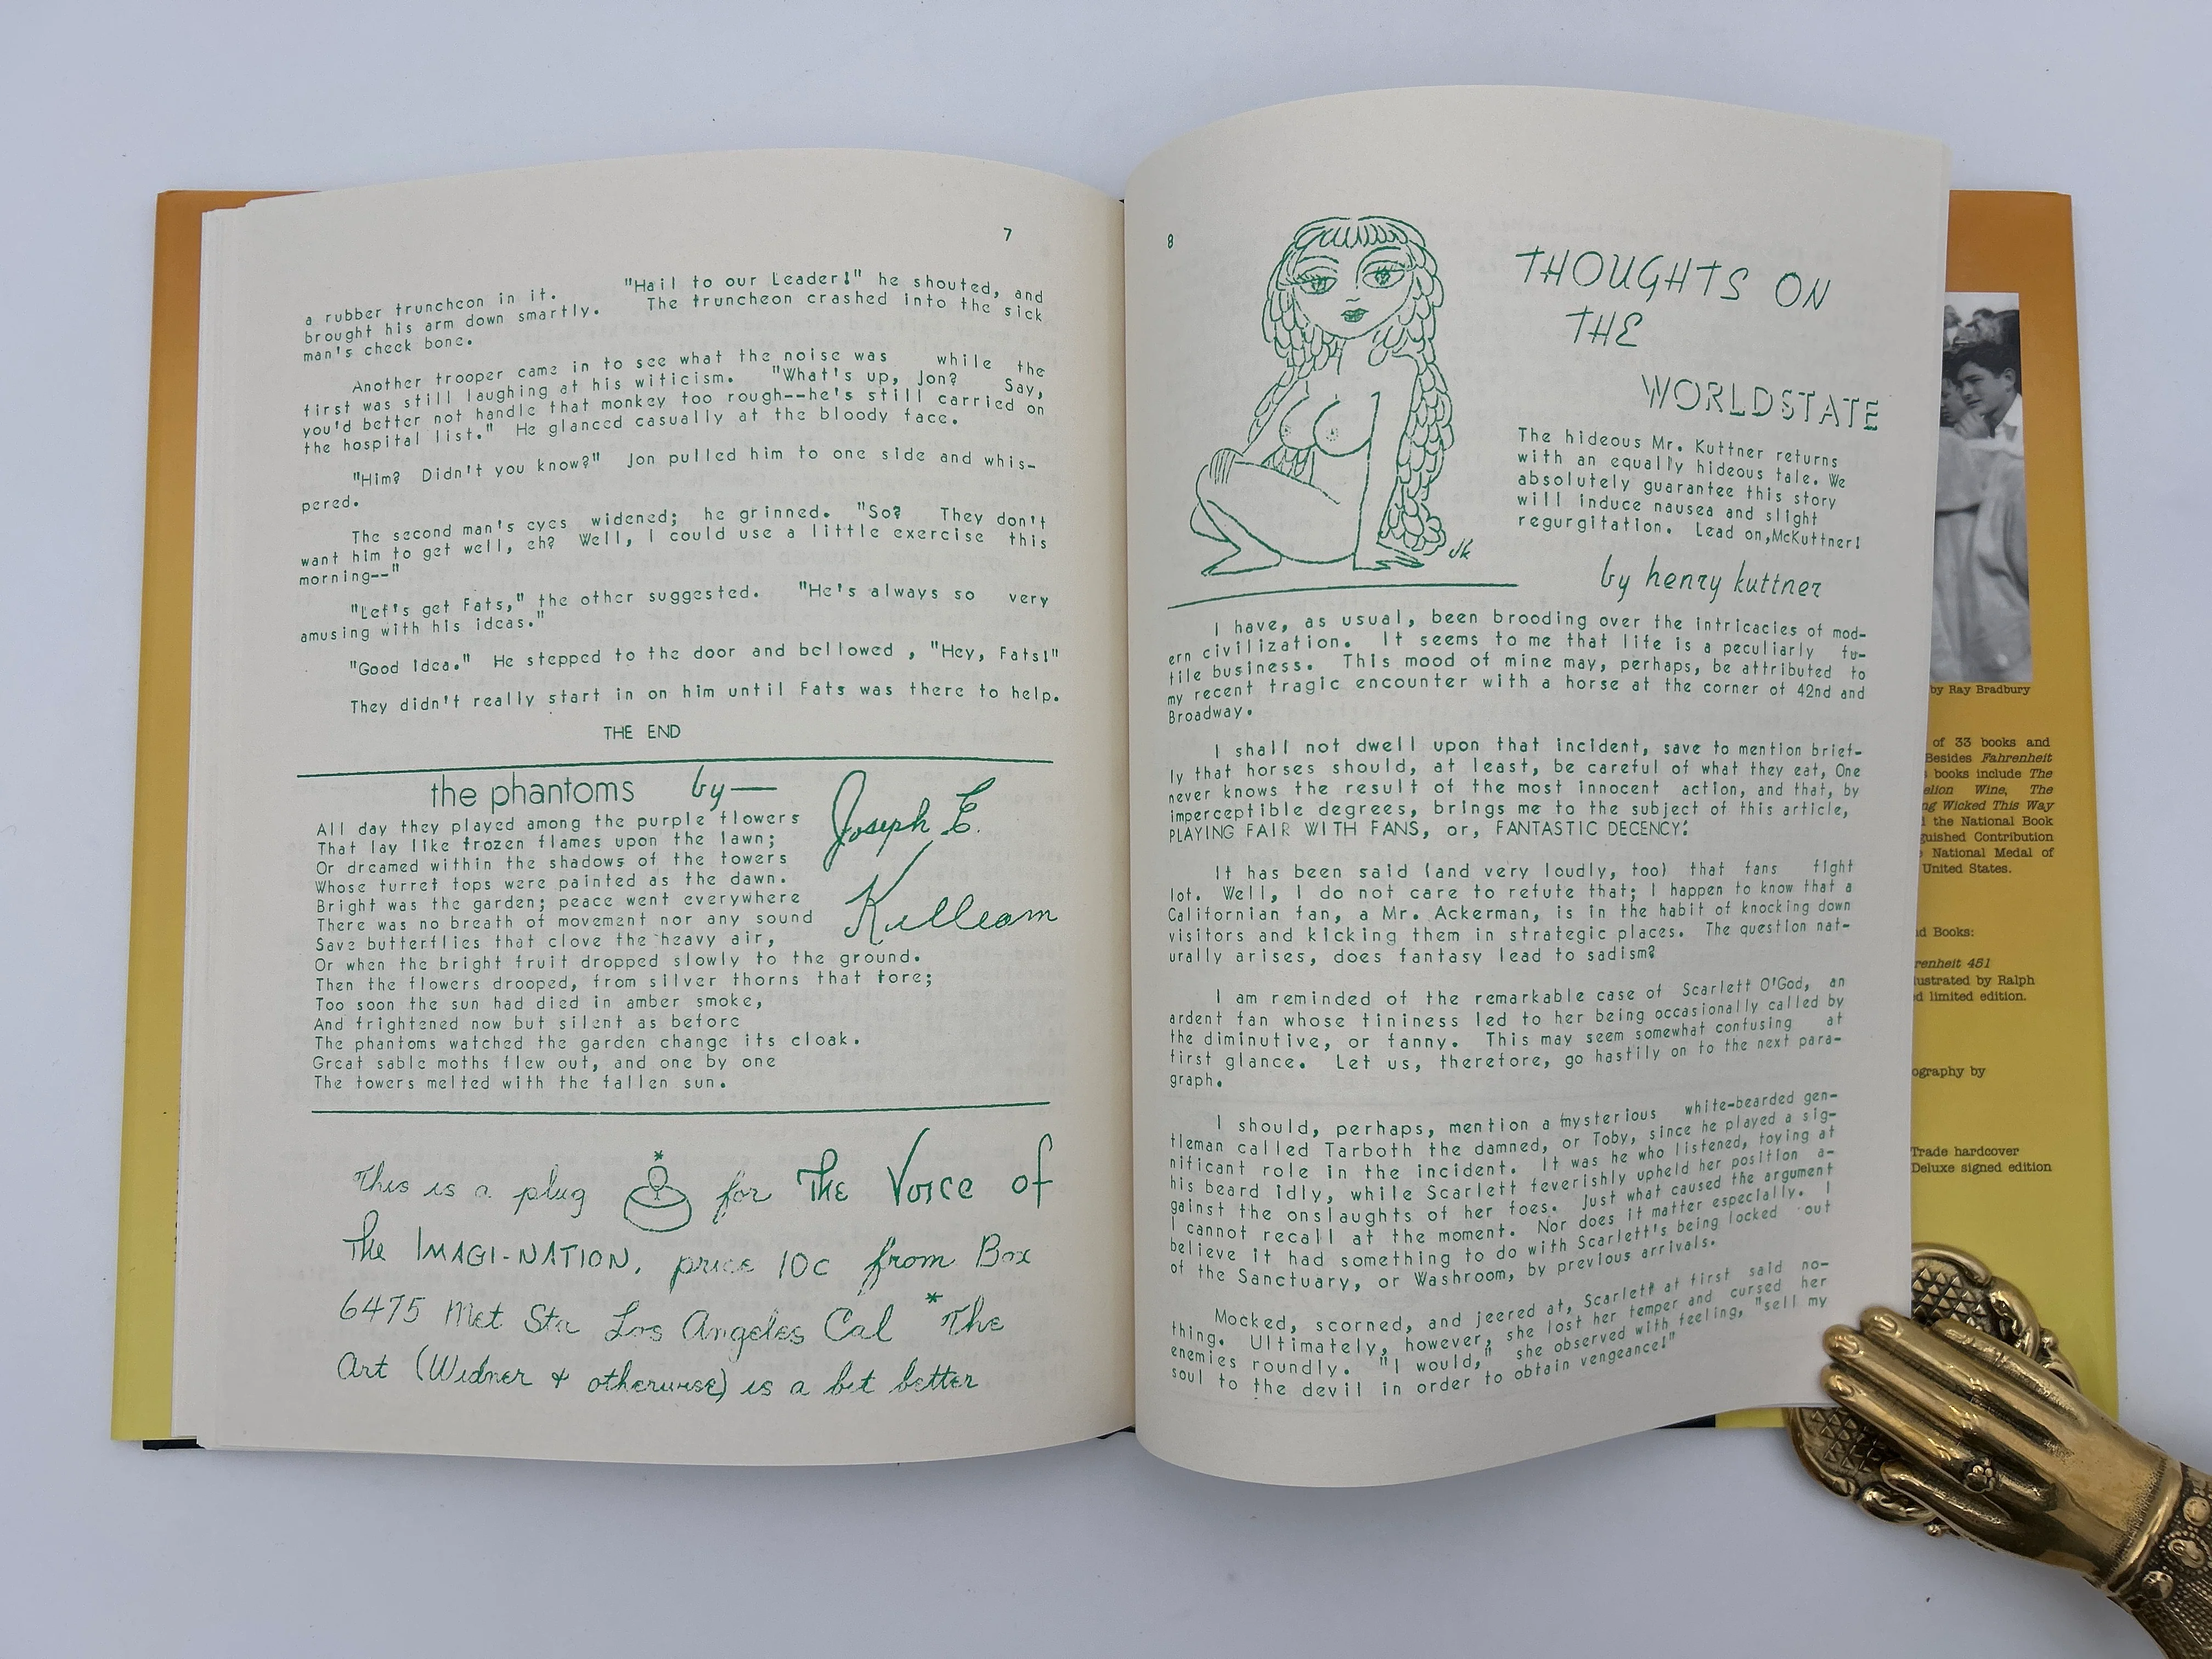 7
a rubber truncheon in it. "Hail to our Leader!" he shouted, and
brought his arm down smartly. The truncheon crashed into the sick
man's cheek bone.
Another trooper came in to see what the noise was while the
first was still laughing at his witicism. "What's up, Jon? Say,
you'd better not handle that monkey too rough--he's still carried on
the hospital list." He glanced casually at the bloody face.
"Him? Didn't you know?" Jon pulled him to one side and whis-
pered.
The second man's eyes widened; he grinned. "So? They don't
want him to get well, eh? Well, I could use a little exercise this
morning--"
"Let's get Fats," the other suggested. "He's always so very
amusing with his ideas."
"Good idea." He stepped to the door and bellowed , "Hey, Fats!"
They didn't really start in on him until Fats was there to help.
THE END
the phantoms by—
Joseph E.
Kelleam
All day they played among the purple flowers
That lay like frozen flames upon the lawn;
Or dreamed within the shadows of the towers
Whose turret tops were painted as the dawn.
Bright was the garden; peace went everywhere
There was no breath of movement nor any sound
Save butterflies that clove the heavy air,
Or when the bright fruit dropped slowly to the ground.
Then the flowers drooped, from silver thorns that tore;
Too soon the sun had died in amber smoke,
And frightened now but silent as before
The phantoms watched the garden change its cloak.
Great sable moths flew out, and one by one
The towers melted with the fallen sun.
This is a plug * for The Voice of
The IMAGI-NATION, price 10c from Box
6475 Met Sta Los Angeles Cal *The
Art (Widner & otherwise) is a bit better
8
THOUGHTS ON
THE
WORLDSTATE
The hideous Mr. Kuttner returns
with an equally hideous tale. We
absolutely guarantee this story
will induce nausea and slight
regurgitation. Lead on,McKuttner!
by henry kuttner
jk
I have, as usual, been brooding over the intricacies of mod-
ern civilization. It seems to me that life is a peculiarly fu-
tile business. This mood of mine may, perhaps, be attributed to
my recent tragic encounter with a horse at the corner of 42nd and
Broadway.
I shall not dwell upon that incident, save to mention brief-
ly that horses should, at least, be careful of what they eat, One
never knows the result of the most innocent action, and that, by
imperceptible degrees, brings me to the subject of this article,
PLAYING FAIR WITH FANS, or, FANTASTIC DECENCY:
It has been said (and very loudly, too) that fans fight
lot. Well, I do not care to refute that; I happen to know that a
Californian fan, a Mr. Ackerman, is in the habit of knocking down
visitors and kicking them in strategic places. The question nat-
urally arises, does fantasy lead to sadism?
I am reminded of the remarkable case of Scarlett O'God, an
ardent fan whose tininess led to her being occasionally called by
the diminutive, or fanny. This may seem somewhat confusing at
first glance. Let us, therefore, go hastily on to the next para-
graph.
I should, perhaps, mention a mysterious white-bearded gen-
tleman called Tarboth the damned, or Toby, since he played a sig-
nificant role in the incident. It was he who listened, toying at
his beard idly, while Scarlett feverishly upheld her position a-
gainst the onslaughts of her foes. Just what caused the argument
I cannot recall at the moment. Nor does it matter especially. I
believe it had something to do with Scarlett's being locked out
of the Sanctuary, or Washroom, by previous arrivals.
Mocked, scorned, and jeered at, Scarlett at first said no-
thing. Ultimately, however, she lost her temper and cursed her
enemies roundly. "I would," she observed with feeling, "sell my
soul to the devil in order to obtain vengeance!"
by Ray Bradbury
of 33 books and
Besides Fahrenheit
books include The
Wine, The
Wicked This Way
the National Book
Contribution
National Medal of
United States.
Books:
451
by Ralph
limited edition.
by
Trade hardcover
Deluxe signed edition